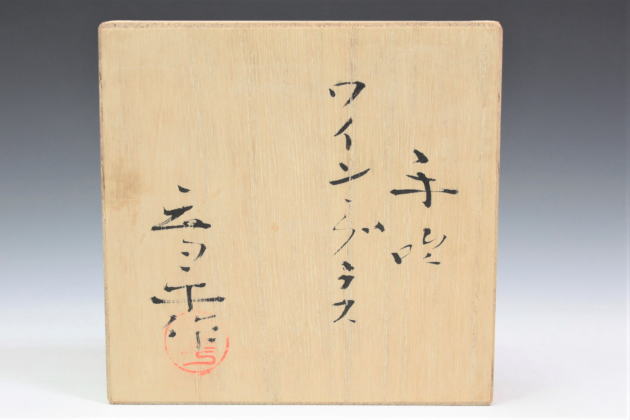 手吹
ワイン・グラス
音平作